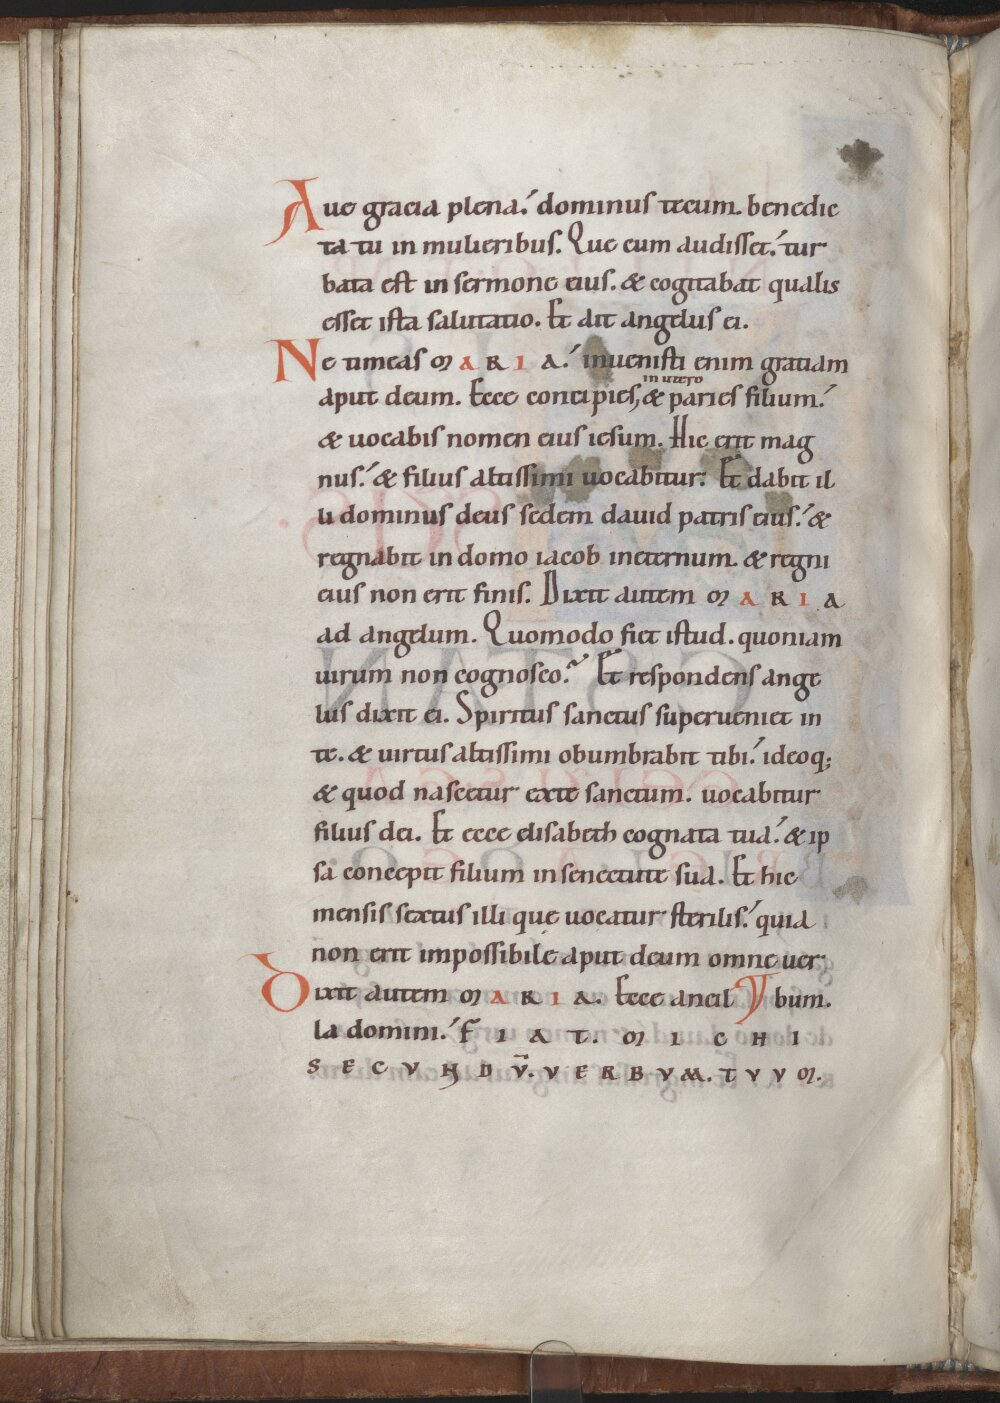 Aue gracia plena. dominus tecum. benedic
ta tu in mulieribus. Que cum audisset. tur
bata est in sermone eius. & cogitabat qualis
esset ista salutatio. Et ait angelus ei.
Ne timeas MARIA. inuenisti enim gratiam
in utero
aput deum. Ecce concipies, & paries filium.
& uocabis nomen eius iesum. Hic erit mag
nus. & filius altissimi uocabitur. Et dabit il
li dominus deus sedem dauid patris eius. &
regnabit in domo iacob ineternum. & regni
eius non erit finis. Dixit autem MARIA
ad angelum. Quomodo fiet istud. quoniam
uirum non cognosco? Et respondens ange
lus dixit ei. Spiritus sanctus superueniet in
te. & uirtus altissimi obumbrabit tibi. ideoq;
& quod nascetur exte sanctum. uocabitur
filius dei. Et ecce elisabeth cognata tua. & ip
sa concepit filium in senectute sua. Et hic
mensis sextus illi que uocatur sterilis. quia
non erit impossibile aput deum omne uer
Dixit autem MARIA. Ecce ancil bum.
la domini. FIAT. MICHI
SECUNDŪ. VERBVM. TVVM.